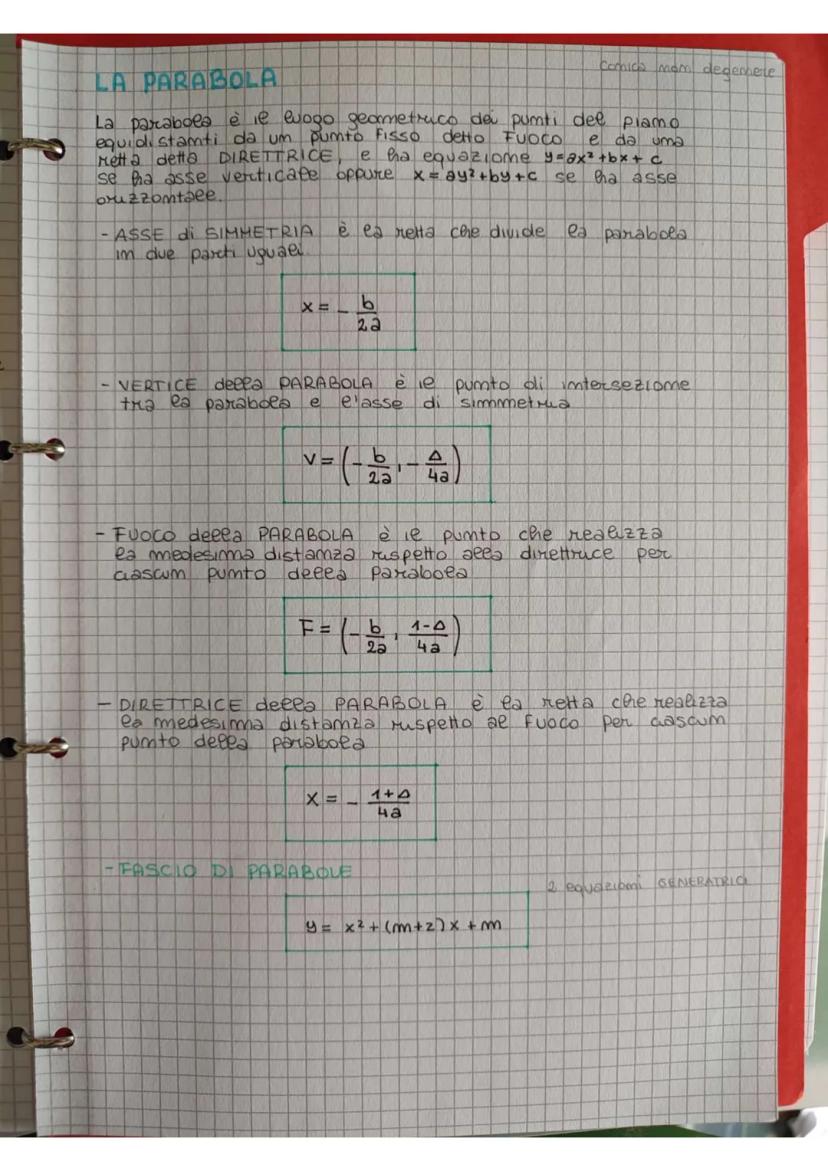 Conica non degenere
LA PARABOLA
La parabola è il luogo geometrico dei punti del piano
equidistanti da un punto fisso detto FUOCO e da una
retta detta DIRETTRICE, e ha equazione y=ax²+bx+c
se ha asse verticale oppure x=ay²+by+c se ha asse
orizzontale.
- ASSE di SIMMETRIA è la retta che divide la parabola
in due parti uguali.
x = - b/2a
- VERTICE della PARABOLA è il punto di intersezione
tra la parabola e l'asse di simmetria
V = (-b/2a, -Δ/4a)
- FUOCO della PARABOLA è il punto che realizza
la medesima distanza rispetto alla direttrice per
ciascun punto della parabola
F = (-b/2a, 1-Δ/4a)
- DIRETTRICE della PARABOLA è la retta che realizza
la medesima distanza rispetto al fuoco per ciascun
punto della parabola
x = - 1+Δ/4a
- FASCIO DI PARABOLE
2 equazioni GENERATRICI
y = x² + (m+2)x + m